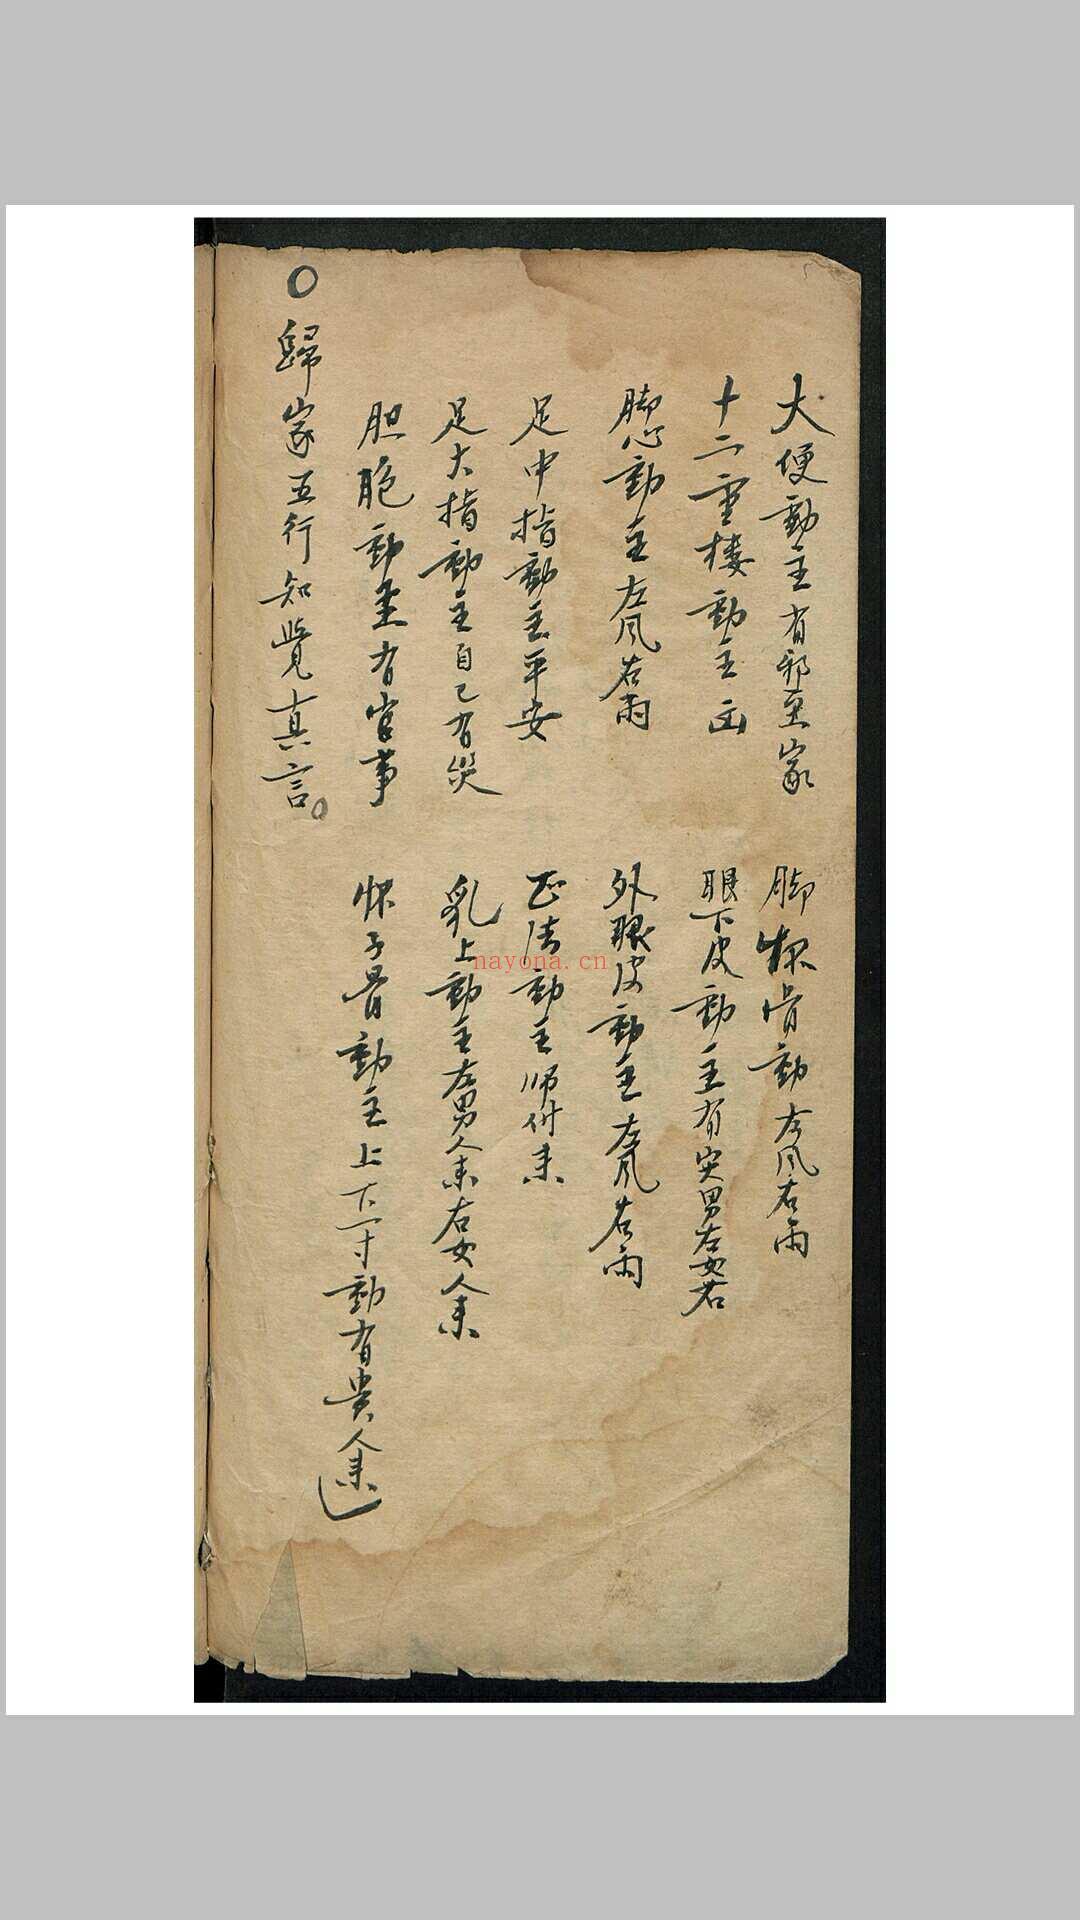 大便動主有邪至家
脚㮈骨動左風右雨
十二重樓動主凶
眼下皮動主有哭男左女右
脚心動主左風右雨
外眼皮動主左風右雨
足中指動主平安
正法動主師付来
足大指動主自己有災
乳上動主左男人来右女人来
胆胞動主有官事
子骨動主上下一寸動有貴人来
○歸家五行知覺真言。
nayona.cn